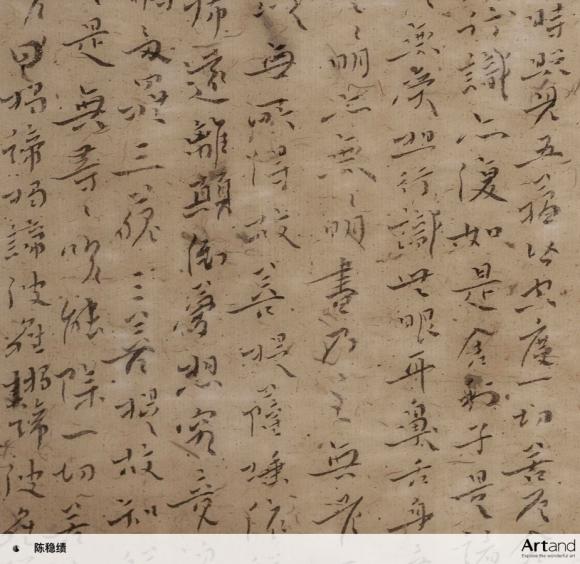 時照見五蘊皆空度一切苦厄
行識亦復如是舍利子是諸
無受想行識無眼耳鼻舌身
明亦無〻明盡乃至無老
以無所得故菩提薩埵依
怖遠離顛倒夢想究竟
耨多羅三藐三菩提故知
是無等〻咒能除一切苦
曰揭諦揭諦波羅揭諦波羅
陈稳绩
Artand
Explore the wonderful art